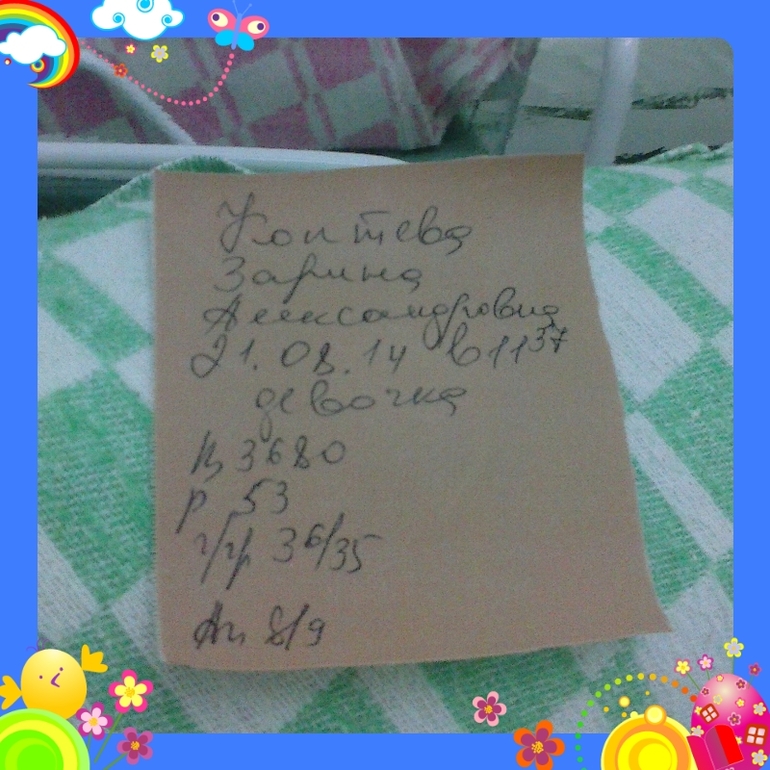 Коптева
Зарина
Александровна
21.08.14 в 11 37
девочка
В 3680
р 53
г/гр 36/35
Ап 8/9